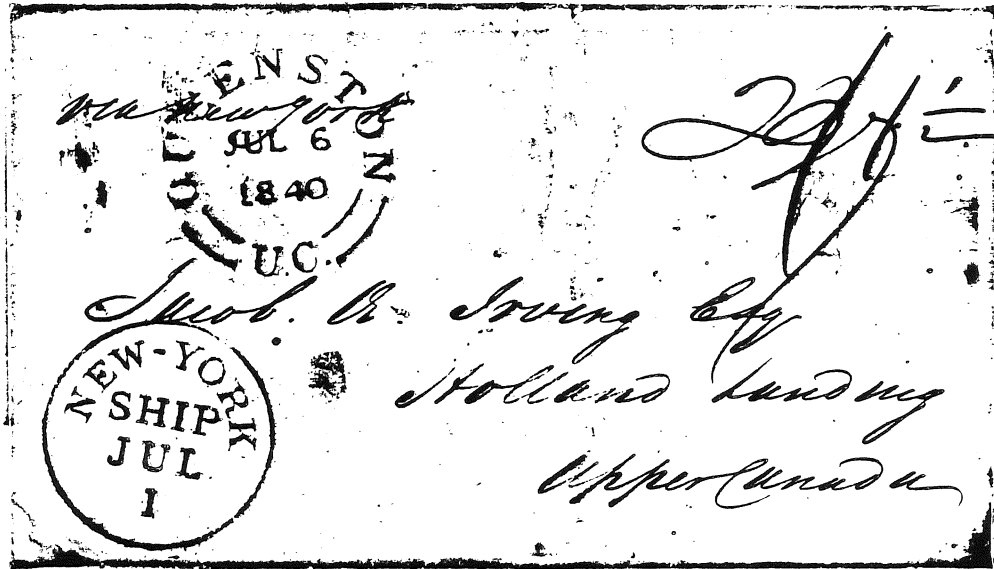 via New York
QUEENSTON
JUL 6
1840
U.C.
Jacob. Æ. Irving Esq
Holland Landing
Upper Canada
NEW-YORK
SHIP
JUL
1